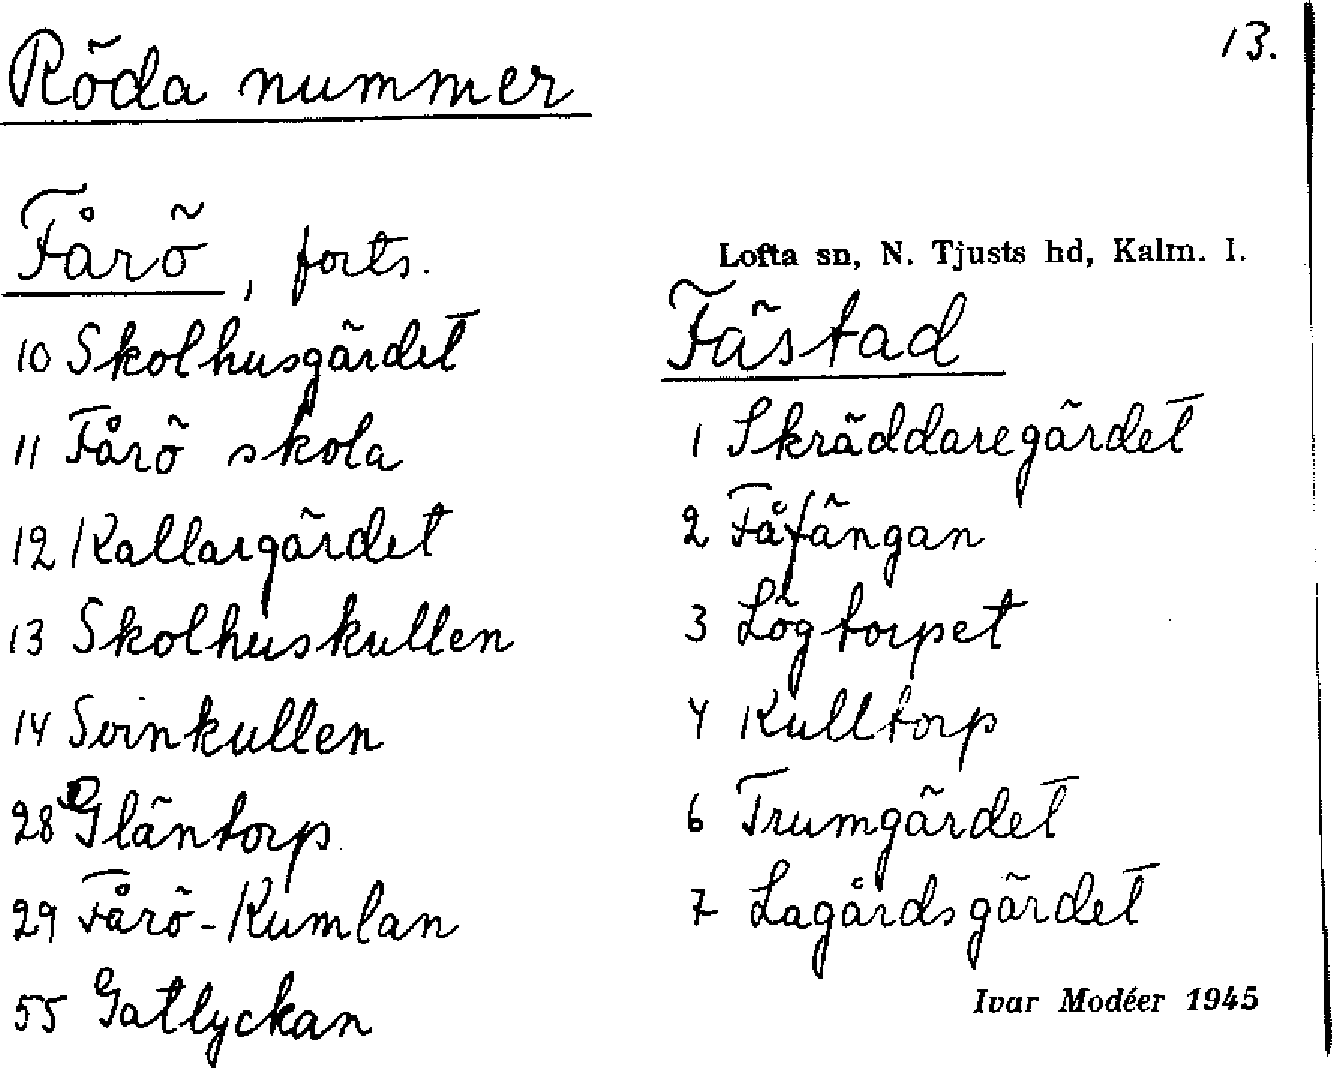 13.
Röda nummer
Fårö, forts.
10 Skolhusgärdet
11 Fårö skola
12 Kallargärdet
13 Skolhuskullen
14 Svinkullen
28 Gläntorp
29 Fårö-Kumlan
55 Gatlyckan
Lofta sn, N. Tjusts hd, Kalm. l.
Fästad
1 Skräddaregärdet
2 Fåfängan
3 Lögtorpet
4 Kulltorp
6 Trumgärdet
7 Lagårdsgärdet
Ivar Modéer 1945